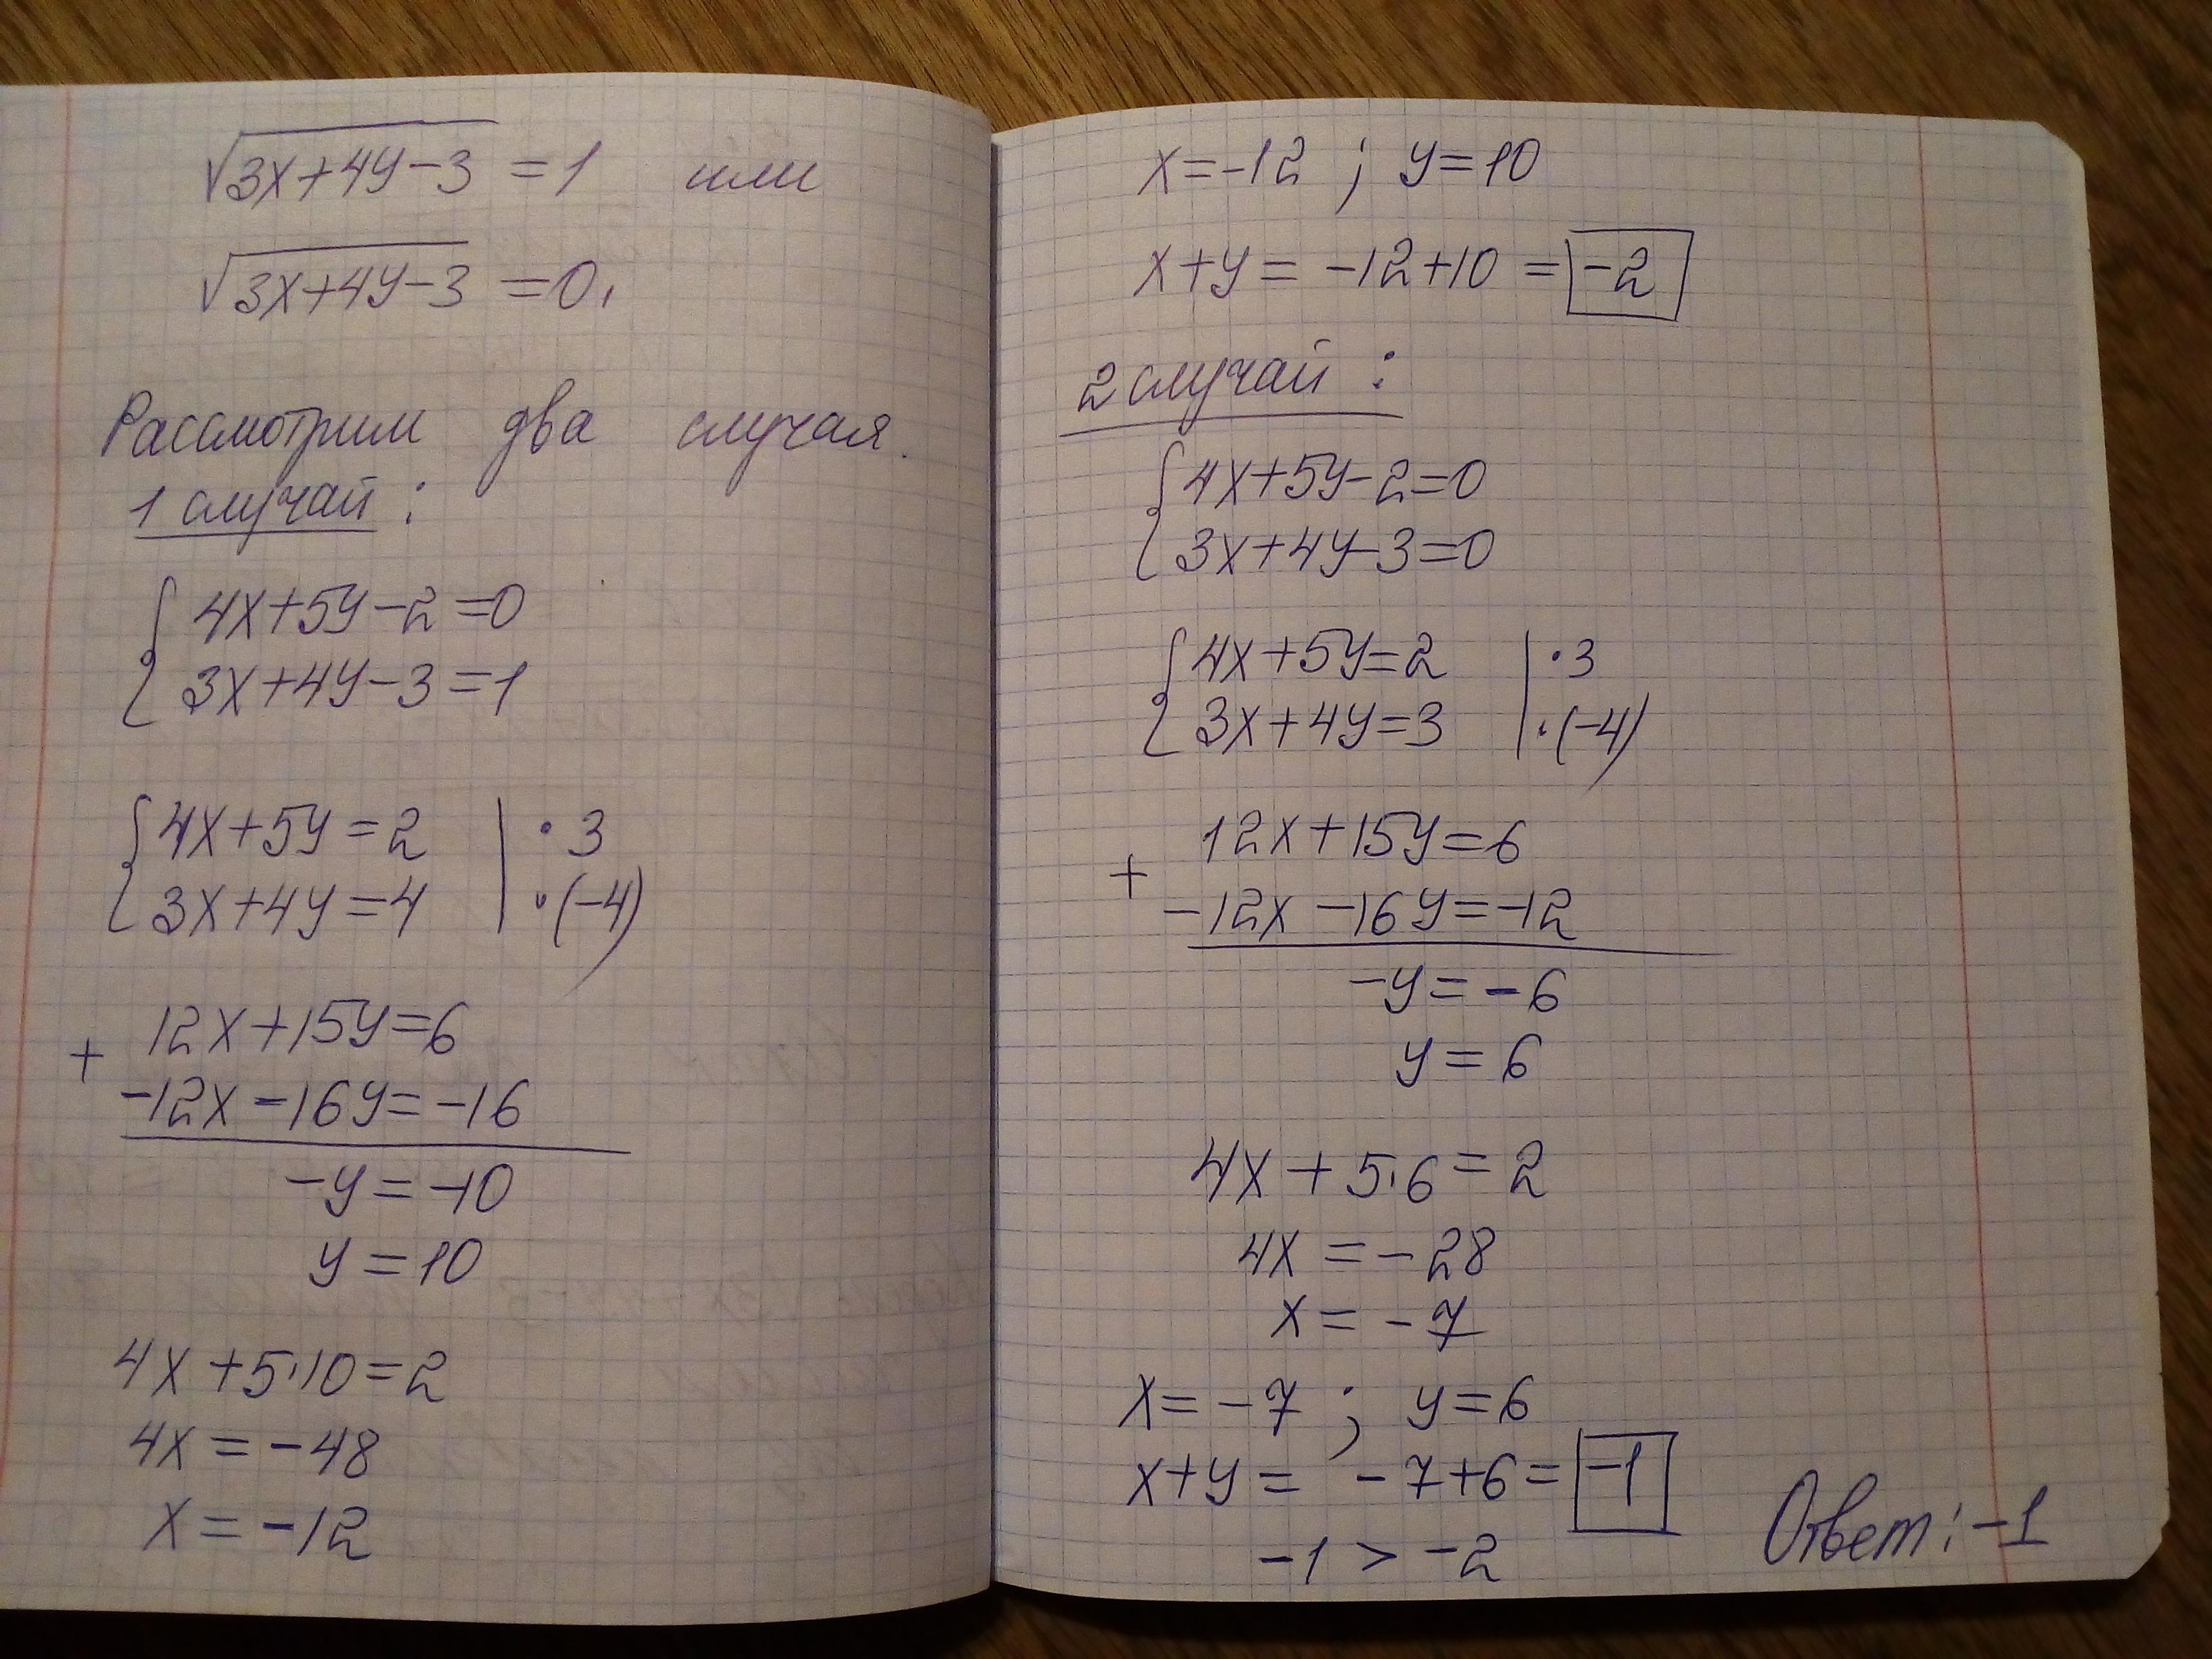 √3x+4y-3 = 1 или
√3x+4y-3 = 0,
Рассмотрим два случая.
1 случай:
{4x+5y-2=0
3x+4y-3=1
{4x+5y=2 | ·3
3x+4y=4 | ·(-4)
+ 12x+15y=6
-12x-16y=-16
-y=-10
y=10
4x+5·10=2
4x=-48
x=-12
x=-12; y=10
x+y=-12+10=-2
2 случай:
{4x+5y-2=0
3x+4y-3=0
{4x+5y=2 | ·3
3x+4y=3 | ·(-4)
+ 12x+15y=6
-12x-16y=-12
-y=-6
y=6
4x+5·6=2
4x=-28
x=-7
x=-7; y=6
x+y=-7+6=-1
-1 > -2
Ответ: -1